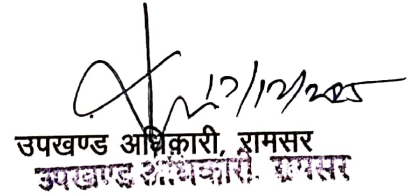 17/12/2025
उपखण्ड अधिकारी, रामसर
उपखण्ड अधिकारी, रामसर